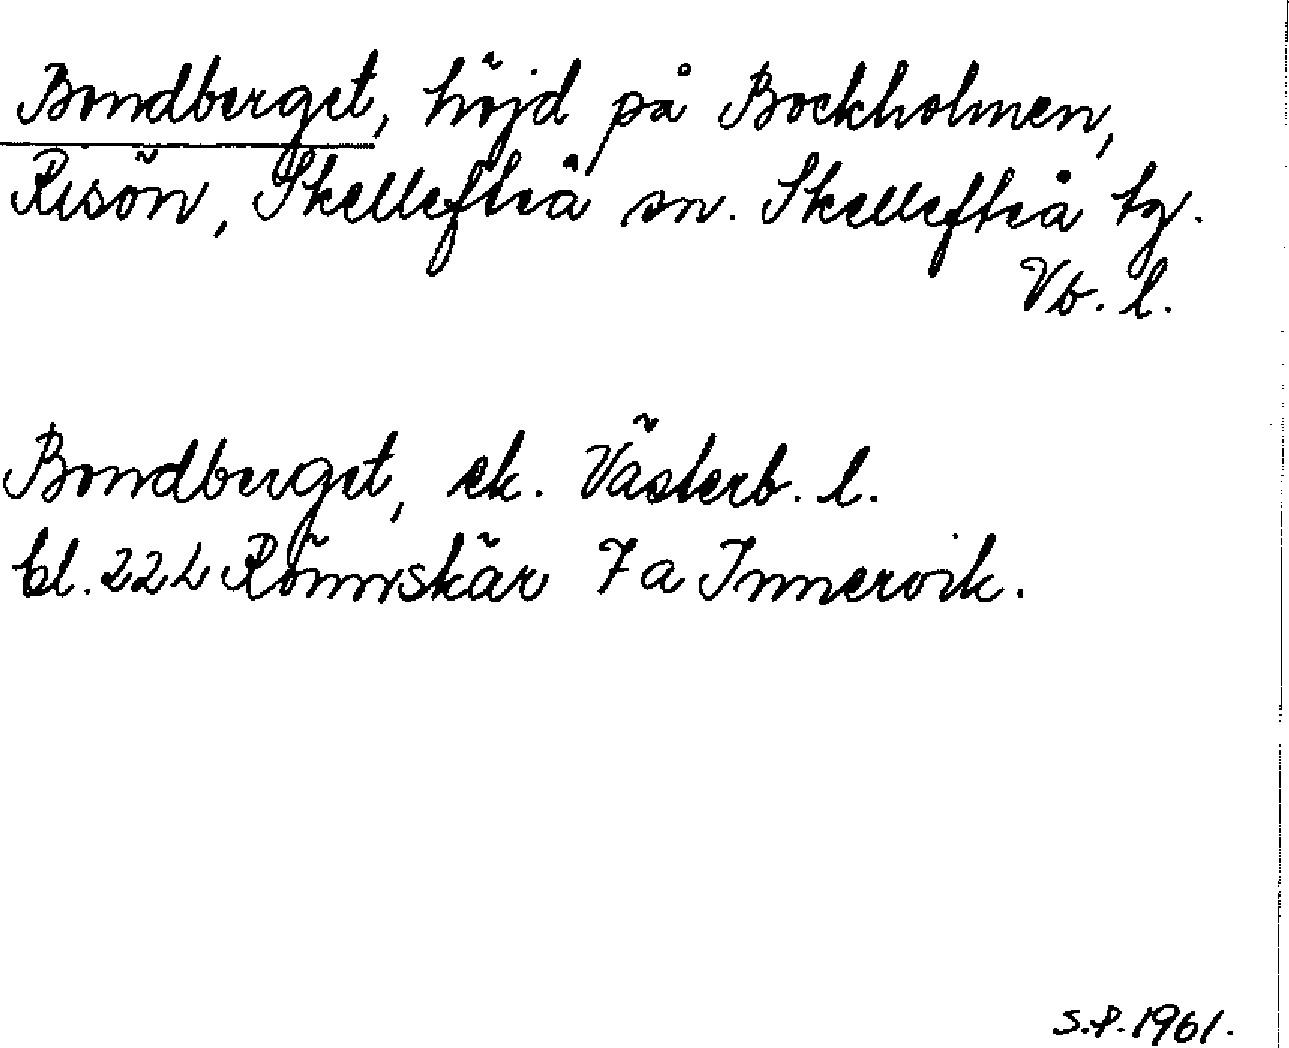 Bondberget, höjd på Bockholmen,
Risön, Skellefteå sn. Skellefteå tg.
Vb. l.
Bondberget, ek. Västerb. l.
bl. 22L Rönnskär 7a Innervik.
S.P. 1961.